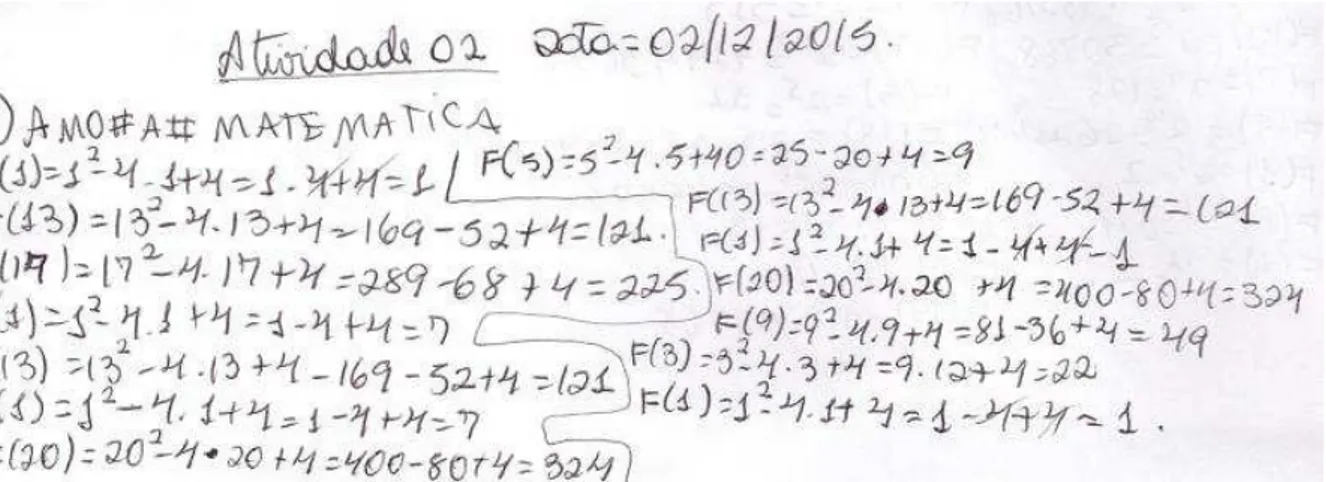 Atividade 02 data = 02/12/2015.
) AMO#A# MATEMATICA
(1)=1²-4.1+4=1-4+4=1
F(13)=13²-4.13+4=169-52+4=121.
(17)=17²-4.17+4=289-68+4=225.
(1)=1²-4.1+4=1-4+4=7
(13)=13²-4.13+4-169-52+4=121
(1)=1²-4.1+4=1-4+4=7
F(20)=20²-4•20+4=400-80+4=324
F(5)=5²-4.5+40=25-20+4=9
F(13)=13²-4•13+4=169-52+4=121
F(1)=1²-4.1+4=1-4+4-1
F(20)=20²-4.20+4=400-80+4=324
F(9)=9²-4.9+4=81-36+4=49
F(3)=3²-4.3+4=9.12+4=22
F(1)=1²-4.1+4=1-4+4=1.